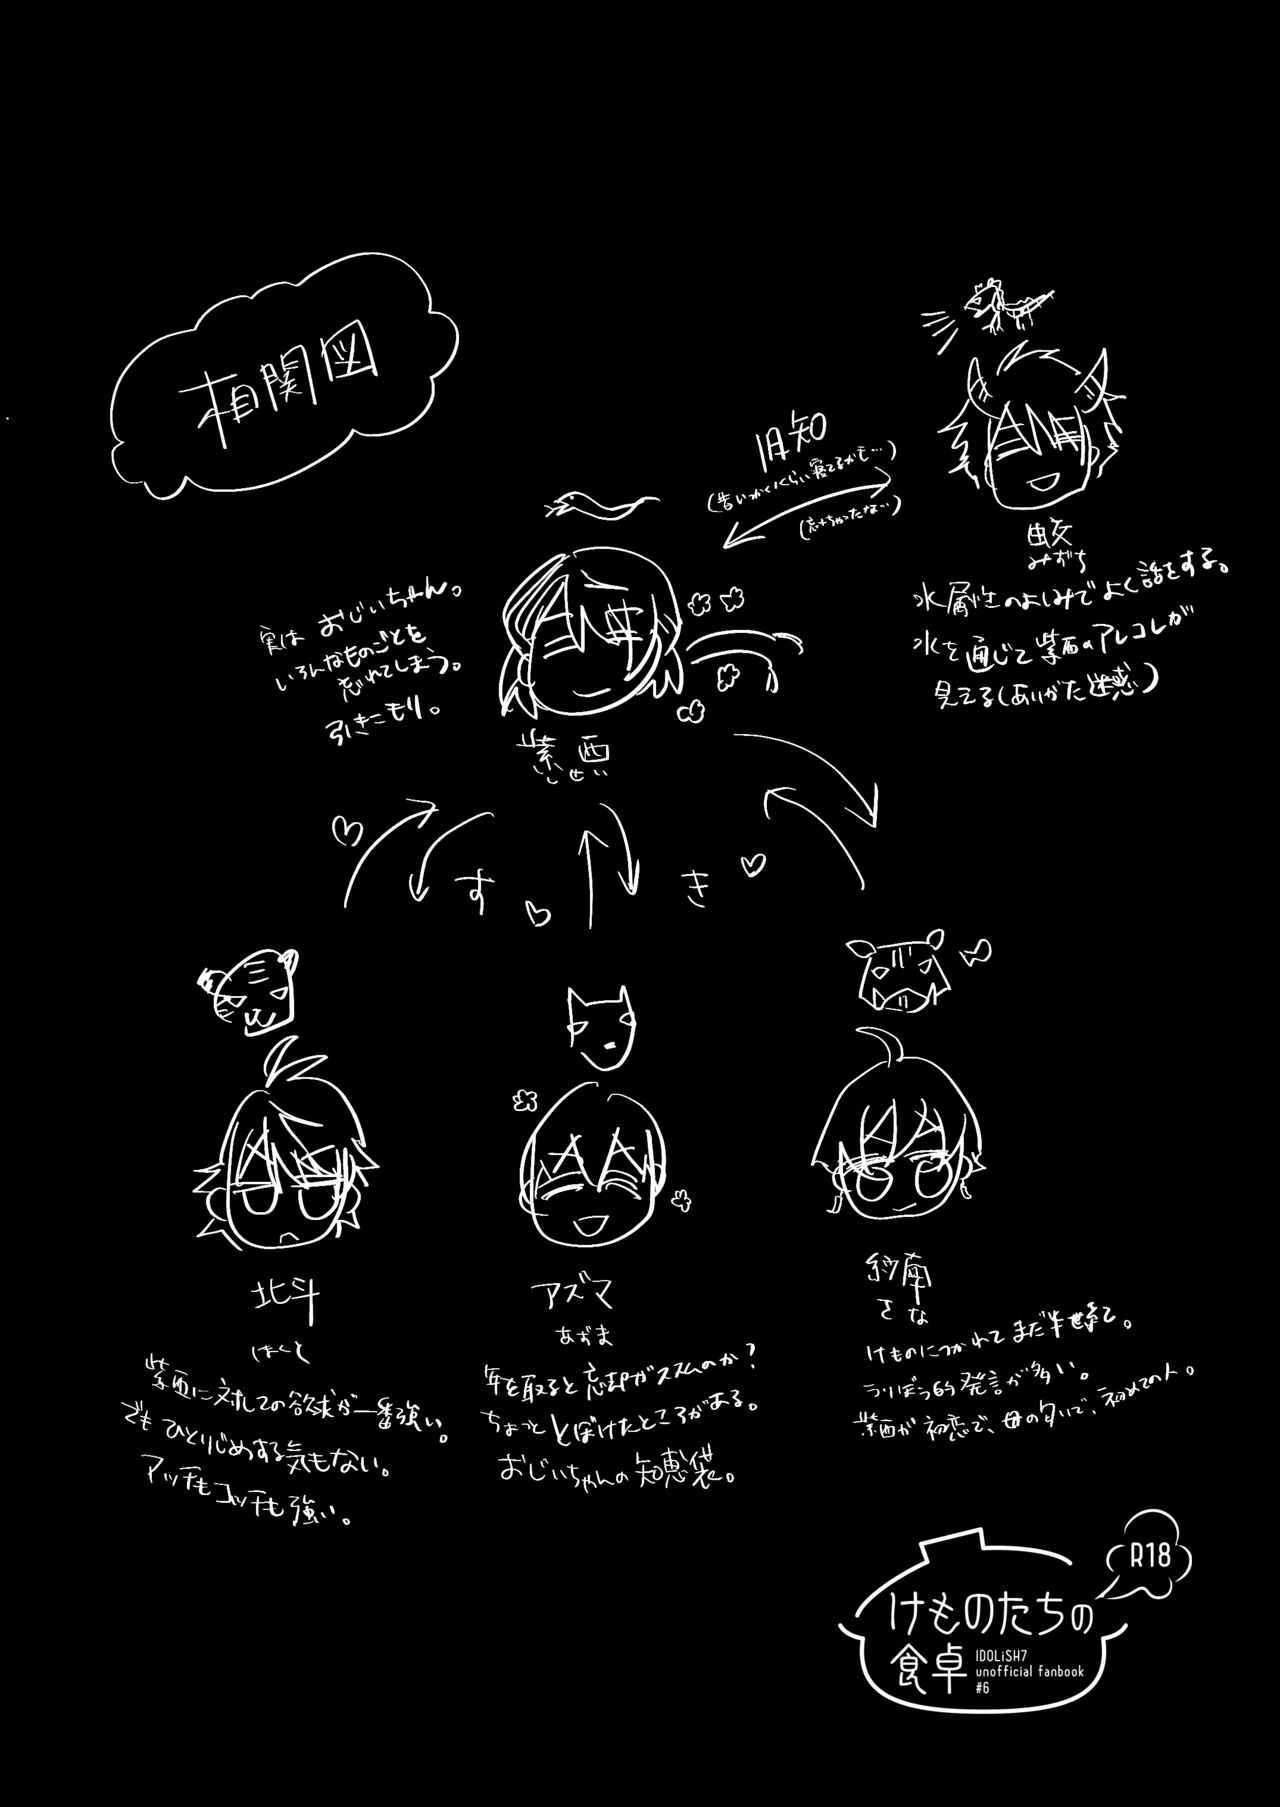 相関図
旧知
(忘れちゃったな…)
蛟
みずち
水属性のよしみでよく話をする。
水を通じて紫西のアレコレが
見てる(ありがた迷惑)
実は おじいちゃん。
いろんなものごとを
忘れてしまう。
引きこもり。
紫西
しせい
す
き
北斗
ほくと
紫西に対しての欲求が一番強い。
でもひとりじめする気もない。
アッチもコッチも強い。
アズマ
あずま
年を取ると忘却がススムのか?
ちょっととぼけたところがある。
おじいちゃんの知恵袋。
紗南
さな
けものにつかれてまだ半世紀。
うりぼう的発言が多い。
紫西が初恋で、母の匂いで、初めての人。
R18
けものたちの
食卓
IDOLiSH7
unofficial fanbook
#6